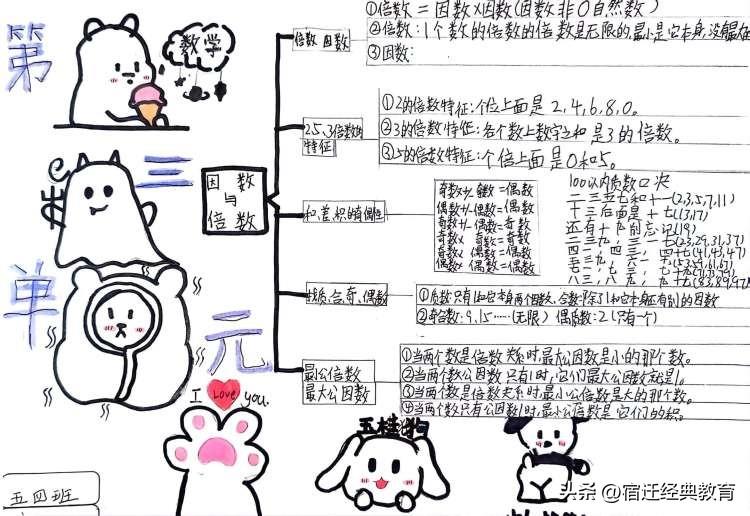 第
三
单
元
数学
因数
与
倍数
倍数 因数
①倍数=因数x因数(因数非0自然数)
②倍数:1个数的倍数的倍数是无限的,最小是它本身,没有最
③因数:
2.5、3倍数的
特征
①2的倍数特征:个位上面是2,4,6,8,0。
②3的倍数特征:各个数上数字之和是3的倍数。
③5的倍数特征:个倍上面是0和5。
和、差、积的奇偶性
奇数+/-奇数=偶数
偶数+/-偶数=偶数
奇数+/-偶数=奇数
奇数x奇数=奇数
奇数x偶数=偶数
偶数x偶数=偶数
100以内质数口决
二三五七和十一(2,3,5,7,11)
十三后面是十七(13,17)
还有十九别忘记(19)
二三九,三一七(23,29,31,37)
四一,四三,四十七(41,43,47)
五三九,六一,六七(53,59,61,67)
七一,七三,七十九(71,73,79)
八三,八九,九十七(83,89,97)
质、合、奇、偶数
①质数只有1和它本身两个因数,合数:除了1和它本身还有别的因数
②奇合数:9、15……(无限) 偶质数:2(只有一个)
最小公倍数
最大公因数
①当两个数是倍数关系时,最大公因数是小的那个数。
②当两个数公因数只有1时,它们最大公因数就是1。
③当两个数是倍数关系时,最小公倍数是大的那个数。
④当两个数只有公因数1时,最小公倍数是它们的积。
I love you.
玉桂狗
五四班
头条@宿迁经典教育